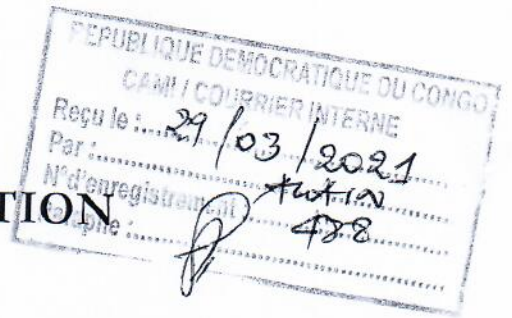 REPUBLIQUE DEMOCRATIQUE DU CONGO
CAMI / COURRIER INTERNE
Reçu le : 29/03/2021
Par :
N° d'enregistrement :
TION